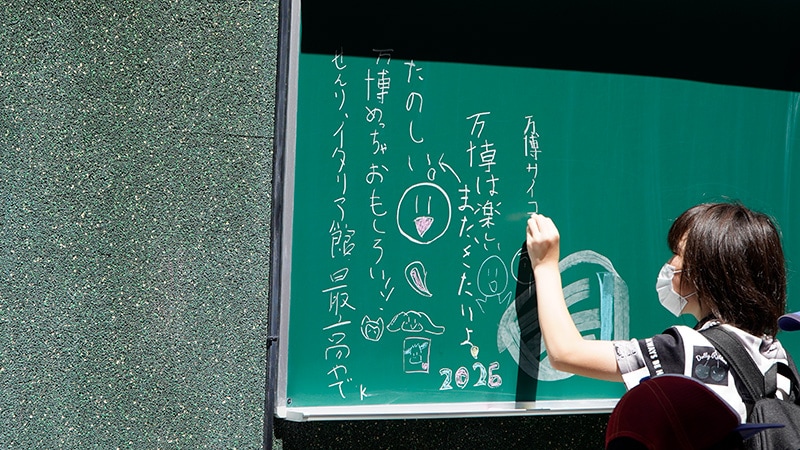 万博サイコ
万博は楽しい
またきたいよ
たのしい
万博めっちゃおもしろい!!
せんり、イタリア館最高やで K
2025